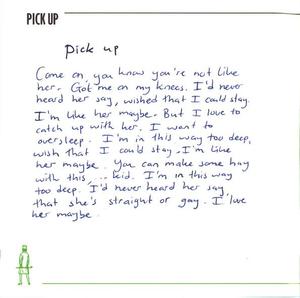 PICK UP
Pick up
Come on, you know you're not like
her. Got me on my knees. I'd never
heard her say, wished that I could stay.
I'm like her maybe. But I love to
catch up with her. I want to
oversleep. I'm in this way too deep,
wish that I could stay. I'm like
her maybe. You can make some hay
with this ... kid. I'm in this way
too deep. I'd never heard her say
that she's straight or gay. I love
her maybe.